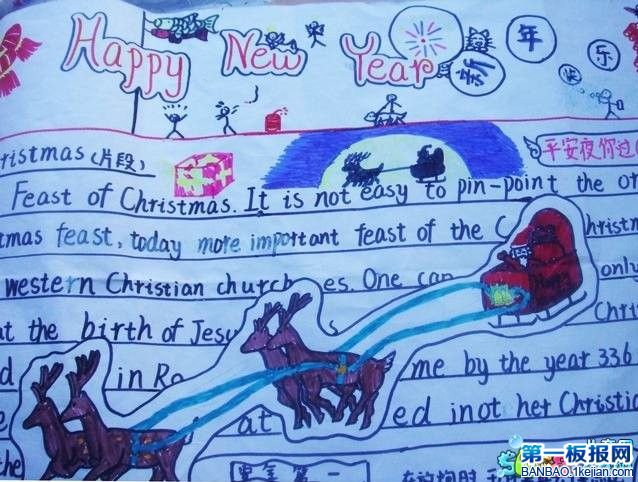 Happy New Year 新年快乐
ristmas(片段)
平安夜你过
Feast of Christmas. It is not easy to pin-point the or
tmas feast, today more important feast of the C hristm
western Christian churches. One can only
at the birth of Jesu Chri
d in Ro me by the year 336
at ed inot her Christia
the
安全第一
第一板报网
BANBAO.1kejian.com